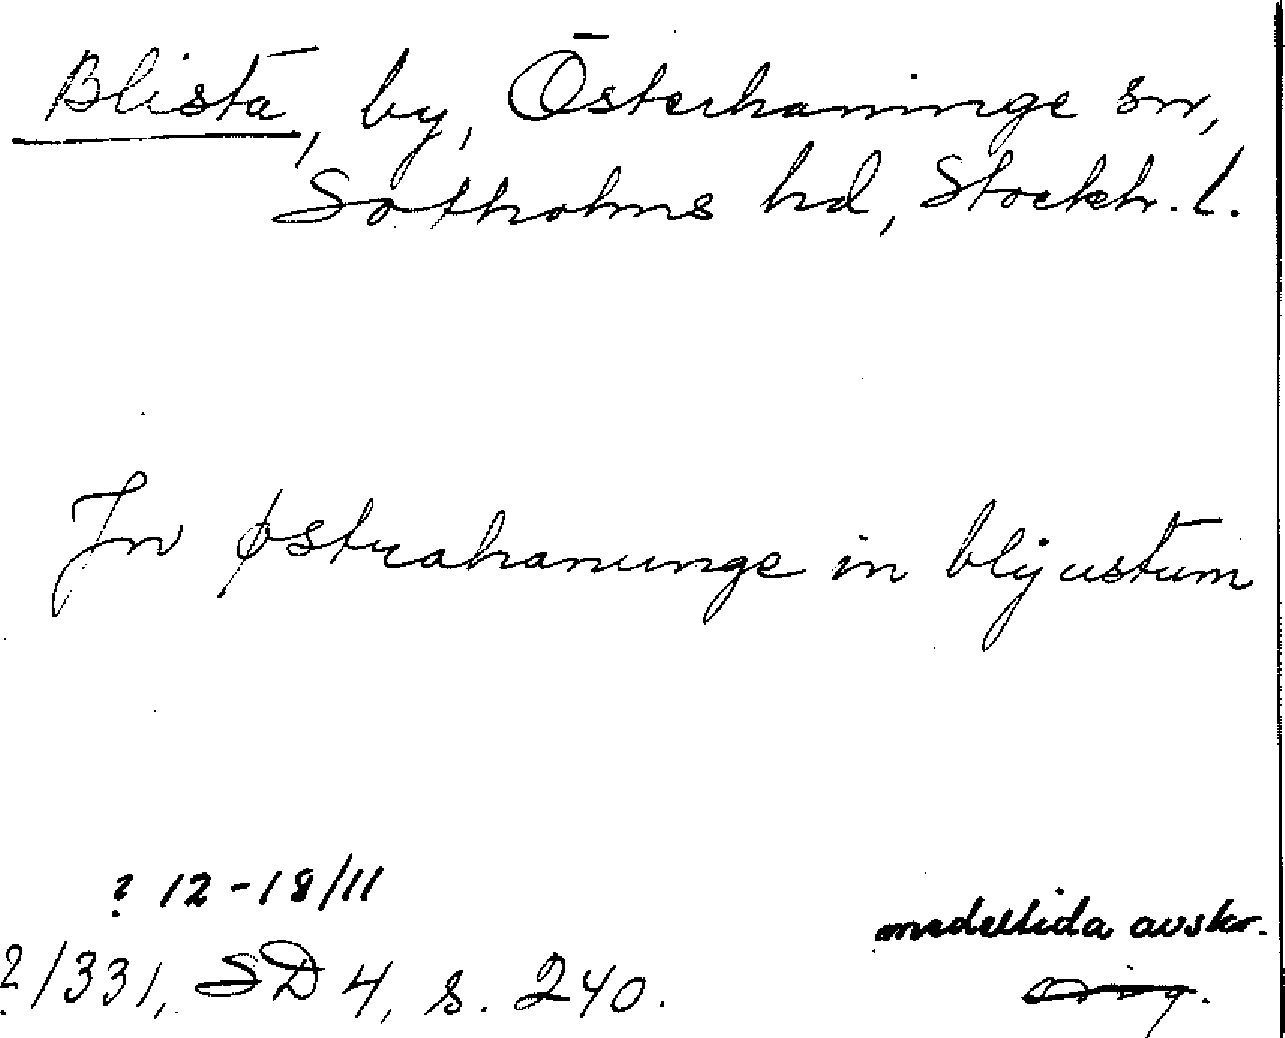 Blista, by, Österhaninge sn,
Sotholms hd, Stockh. l.
In østrahanunge in blijustum
? 12-18/11
?/331, SD 4, s. 240.
medeltida avskr.
orig.